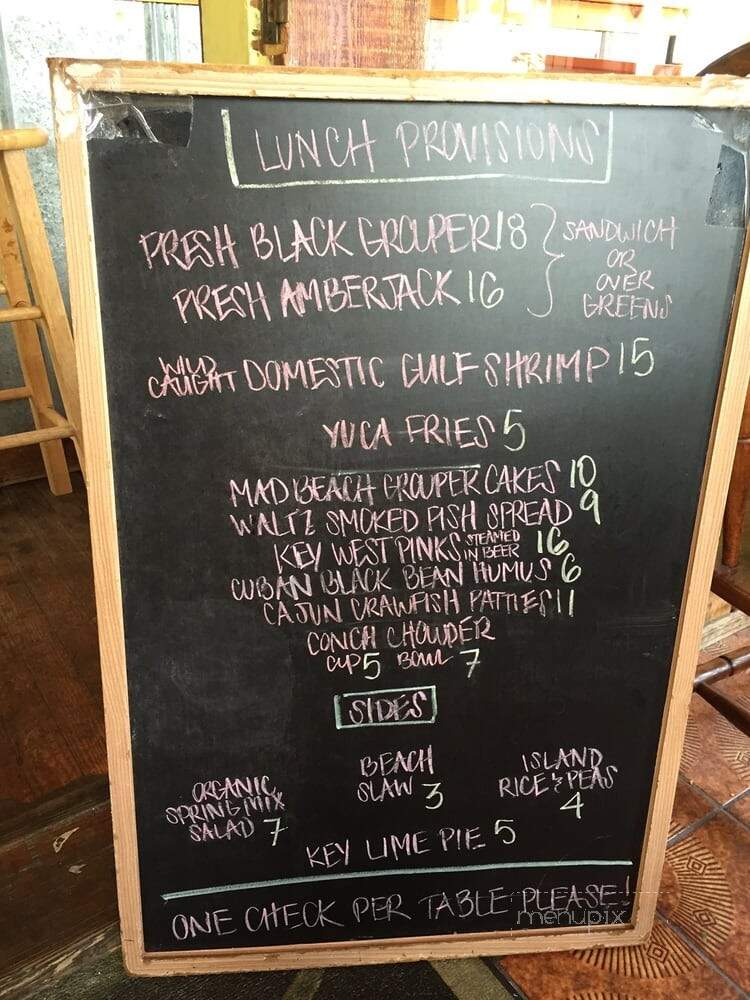 LUNCH PROVISIONS
FRESH BLACK GROUPER 18
FRESH AMBERJACK 16
SANDWICH
OR
OVER
GREENS
WILD CAUGHT DOMESTIC GULF SHRIMP 15
YUCA FRIES 5
MAD BEACH GROUPER CAKES 10
WALTZ SMOKED FISH SPREAD 9
KEY WEST PINKS STEAMED IN BEER 16
CUBAN BLACK BEAN HUMUS 6
CAJUN CRAWFISH PATTIES 11
CONCH CHOWDER
CUP 5 BOWL 7
SIDES
ORGANIC
SPRING MIX
SALAD 7
BEACH
SLAW 3
ISLAND
RICE & PEAS
4
KEY LIME PIE 5
ONE CHECK PER TABLE PLEASE!
menupix